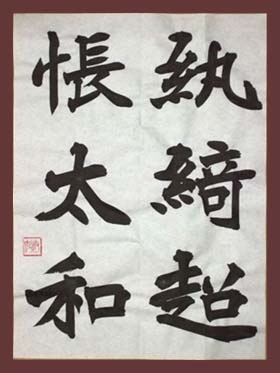 紈綺超
悵太和